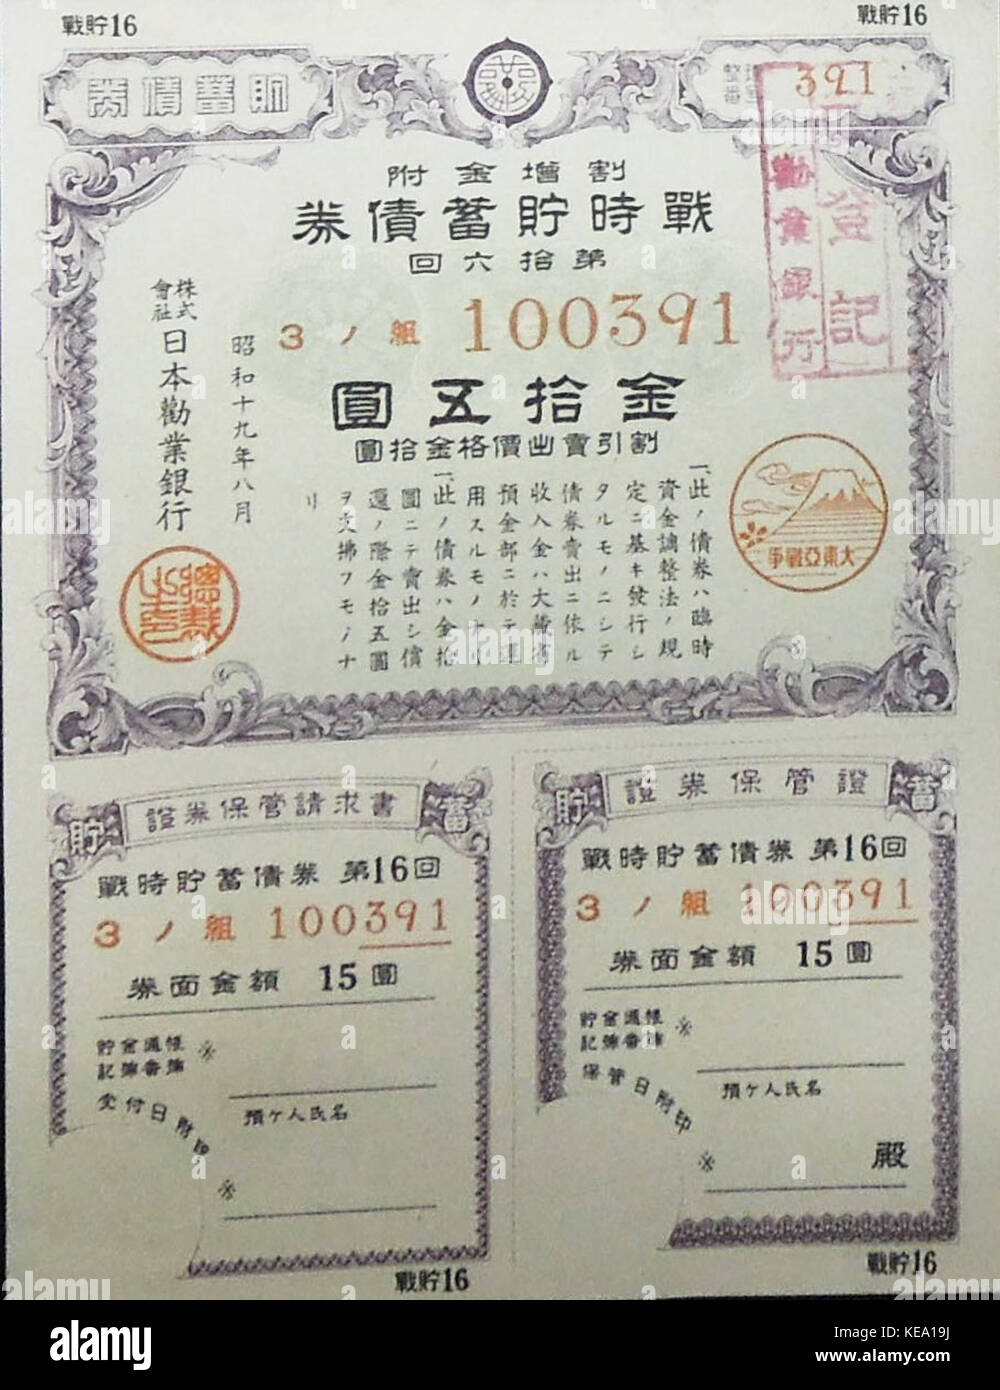 戰貯16
戰貯16
貯蓄債券
391
割增金附
戰時貯蓄債券
第拾六回
3ノ組 100391
金拾五圓
割引賣出價格金拾圓
登記
勸業銀行
大東亞戰爭
一、此ノ債券ハ臨時
資金調整法ノ規
定ニ基キ發行シ
タルモノニシテ
債券賣出ニ依ル
收入金ハ大藏省
預金部ニ於テ運
用スルモノナリ
一、此ノ債券ハ金拾
圓ニテ賣出シ償
還ノ際金拾五圓
ヲ支拂フモノナ
リ
昭和十九年八月
株式會社日本勸業銀行
證券保管請求書
貯
蓄
戰時貯蓄債券 第16回
3ノ組 100391
券面金額 15圓
貯金通帳
記號番號 ※
受付日附印
預ケ人氏名
※
戰貯16
證券保管證
貯
蓄
戰時貯蓄債券 第16回
3ノ組 100391
券面金額 15圓
貯金通帳
記號番號 ※
保管日附印
預ケ人氏名
※
殿
戰貯16
alamy
Image ID: KEA19J
www.alamy.com